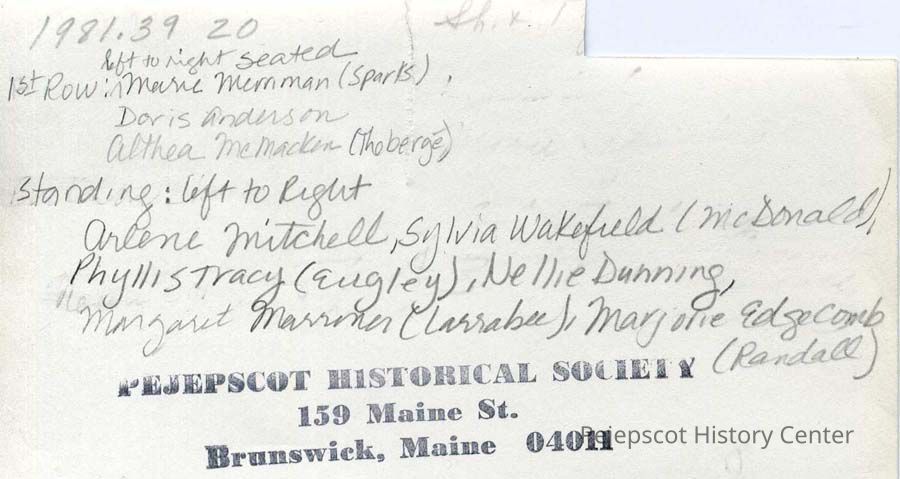 1981.39 20
Sh.x. 1
left to right seated
1st Row: Marie Merriman (Sparks),
Doris Anderson
Althea McMacken (Thoberge)
Standing: left to Right
Arlene Mitchell, Sylvia Wakefield (McDonald),
Phyllis Tracy (Eugley), Nellie Dunning,
Margaret Marriner (Larrabee), Marjorie Edgecomb
(Randall)
PEJEPSCOT HISTORICAL SOCIETY
159 Maine St.
Brunswick, Maine 04011
Pejepscot History Center